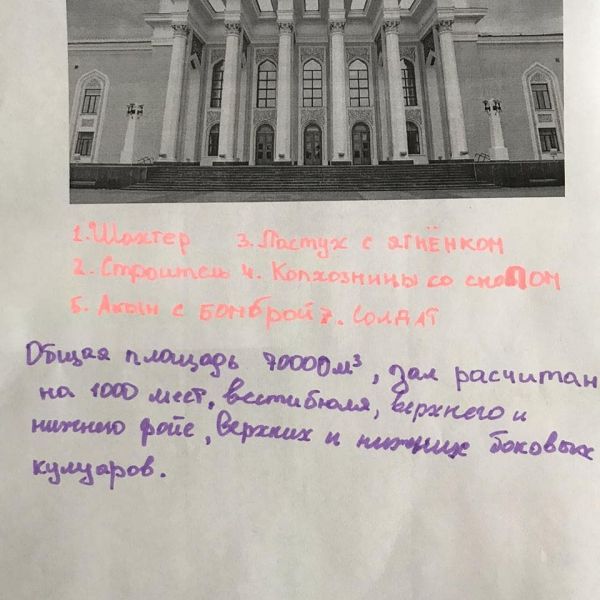 1. Шахтер 3. Пастух с ягнёнком
2. Строитель 4. Колхозницы со снопом
5. Акын с бомброй 7. Солдат
Общая площадь 70000м³, зал расчитан
на 1000 мест, вестибюля, верхнего и
нижнего фойе, верхних и нижних боковых
кулуаров.